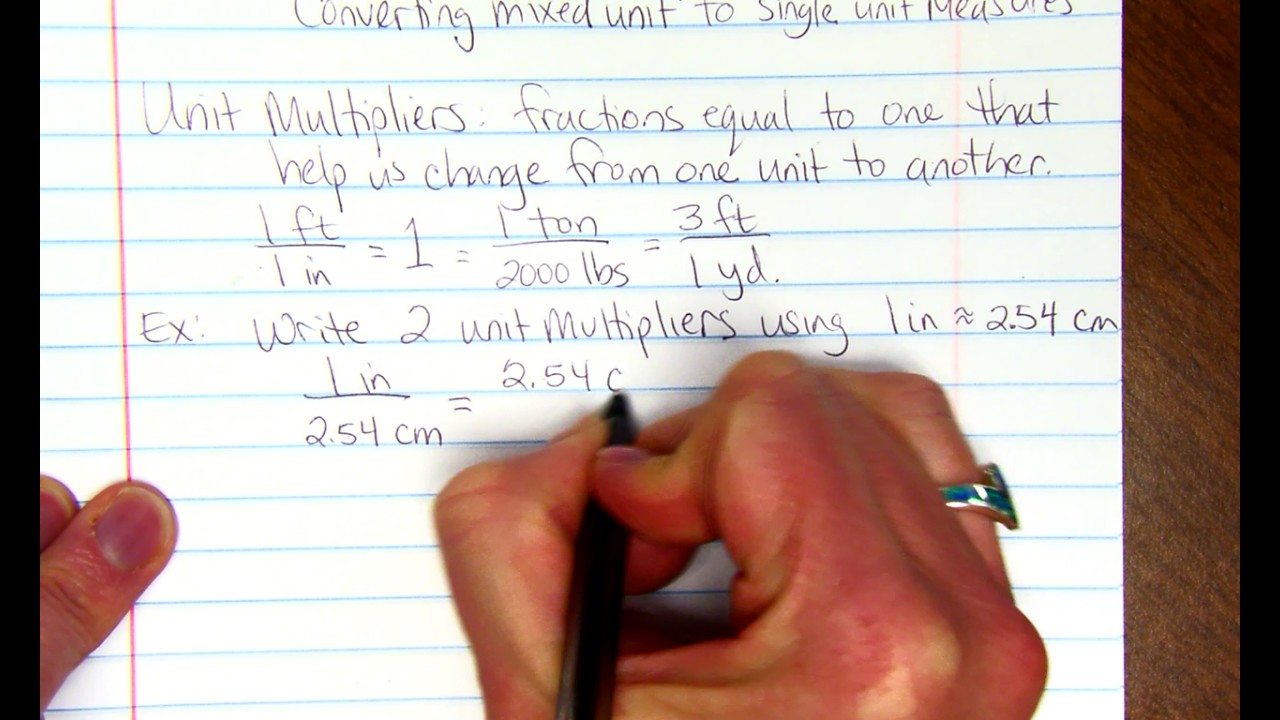 Converting mixed unit to single unit Measures
Unit Multipliers: fractions equal to one that
help us change from one unit to another.
1 ft / 1 in = 1 = 1 ton / 2000 lbs = 3 ft / 1 yd.
Ex: Write 2 unit Multipliers using 1 in ≈ 2.54 cm
1 in / 2.54 cm = 2.54 c